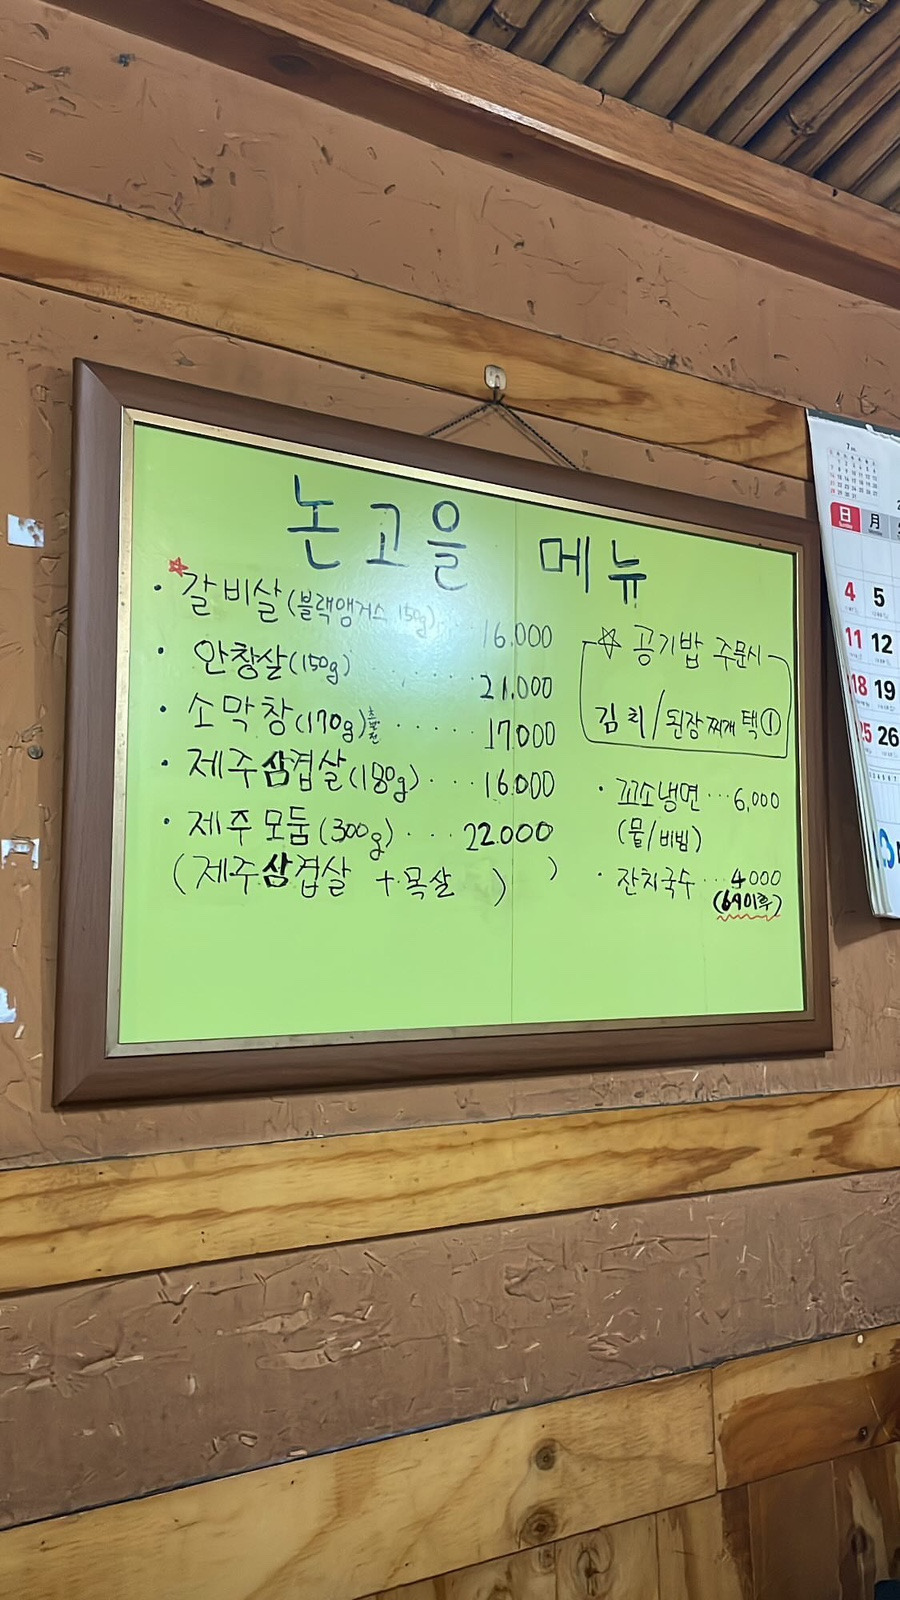 논고을 메뉴
· ☆갈비살(블랙앵거스 150g) 16.000
· 안창살(150g) ····· 21.000
· 소막창(170g) ···· 17.000
· 제주삼겹살(180g) ···· 16.000
· 제주모둠(300g) ···· 22.000
(제주삼겹살 + 목살 ) )
☆ 공기밥 주문시
김치/된장찌개 택①
· 꼬소냉면 ··· 6,000
(물/비빔)
· 잔치국수 ··· 4000
(6시이후)
7
日 月
Sunday
4 5
11 12
18 19
25 26